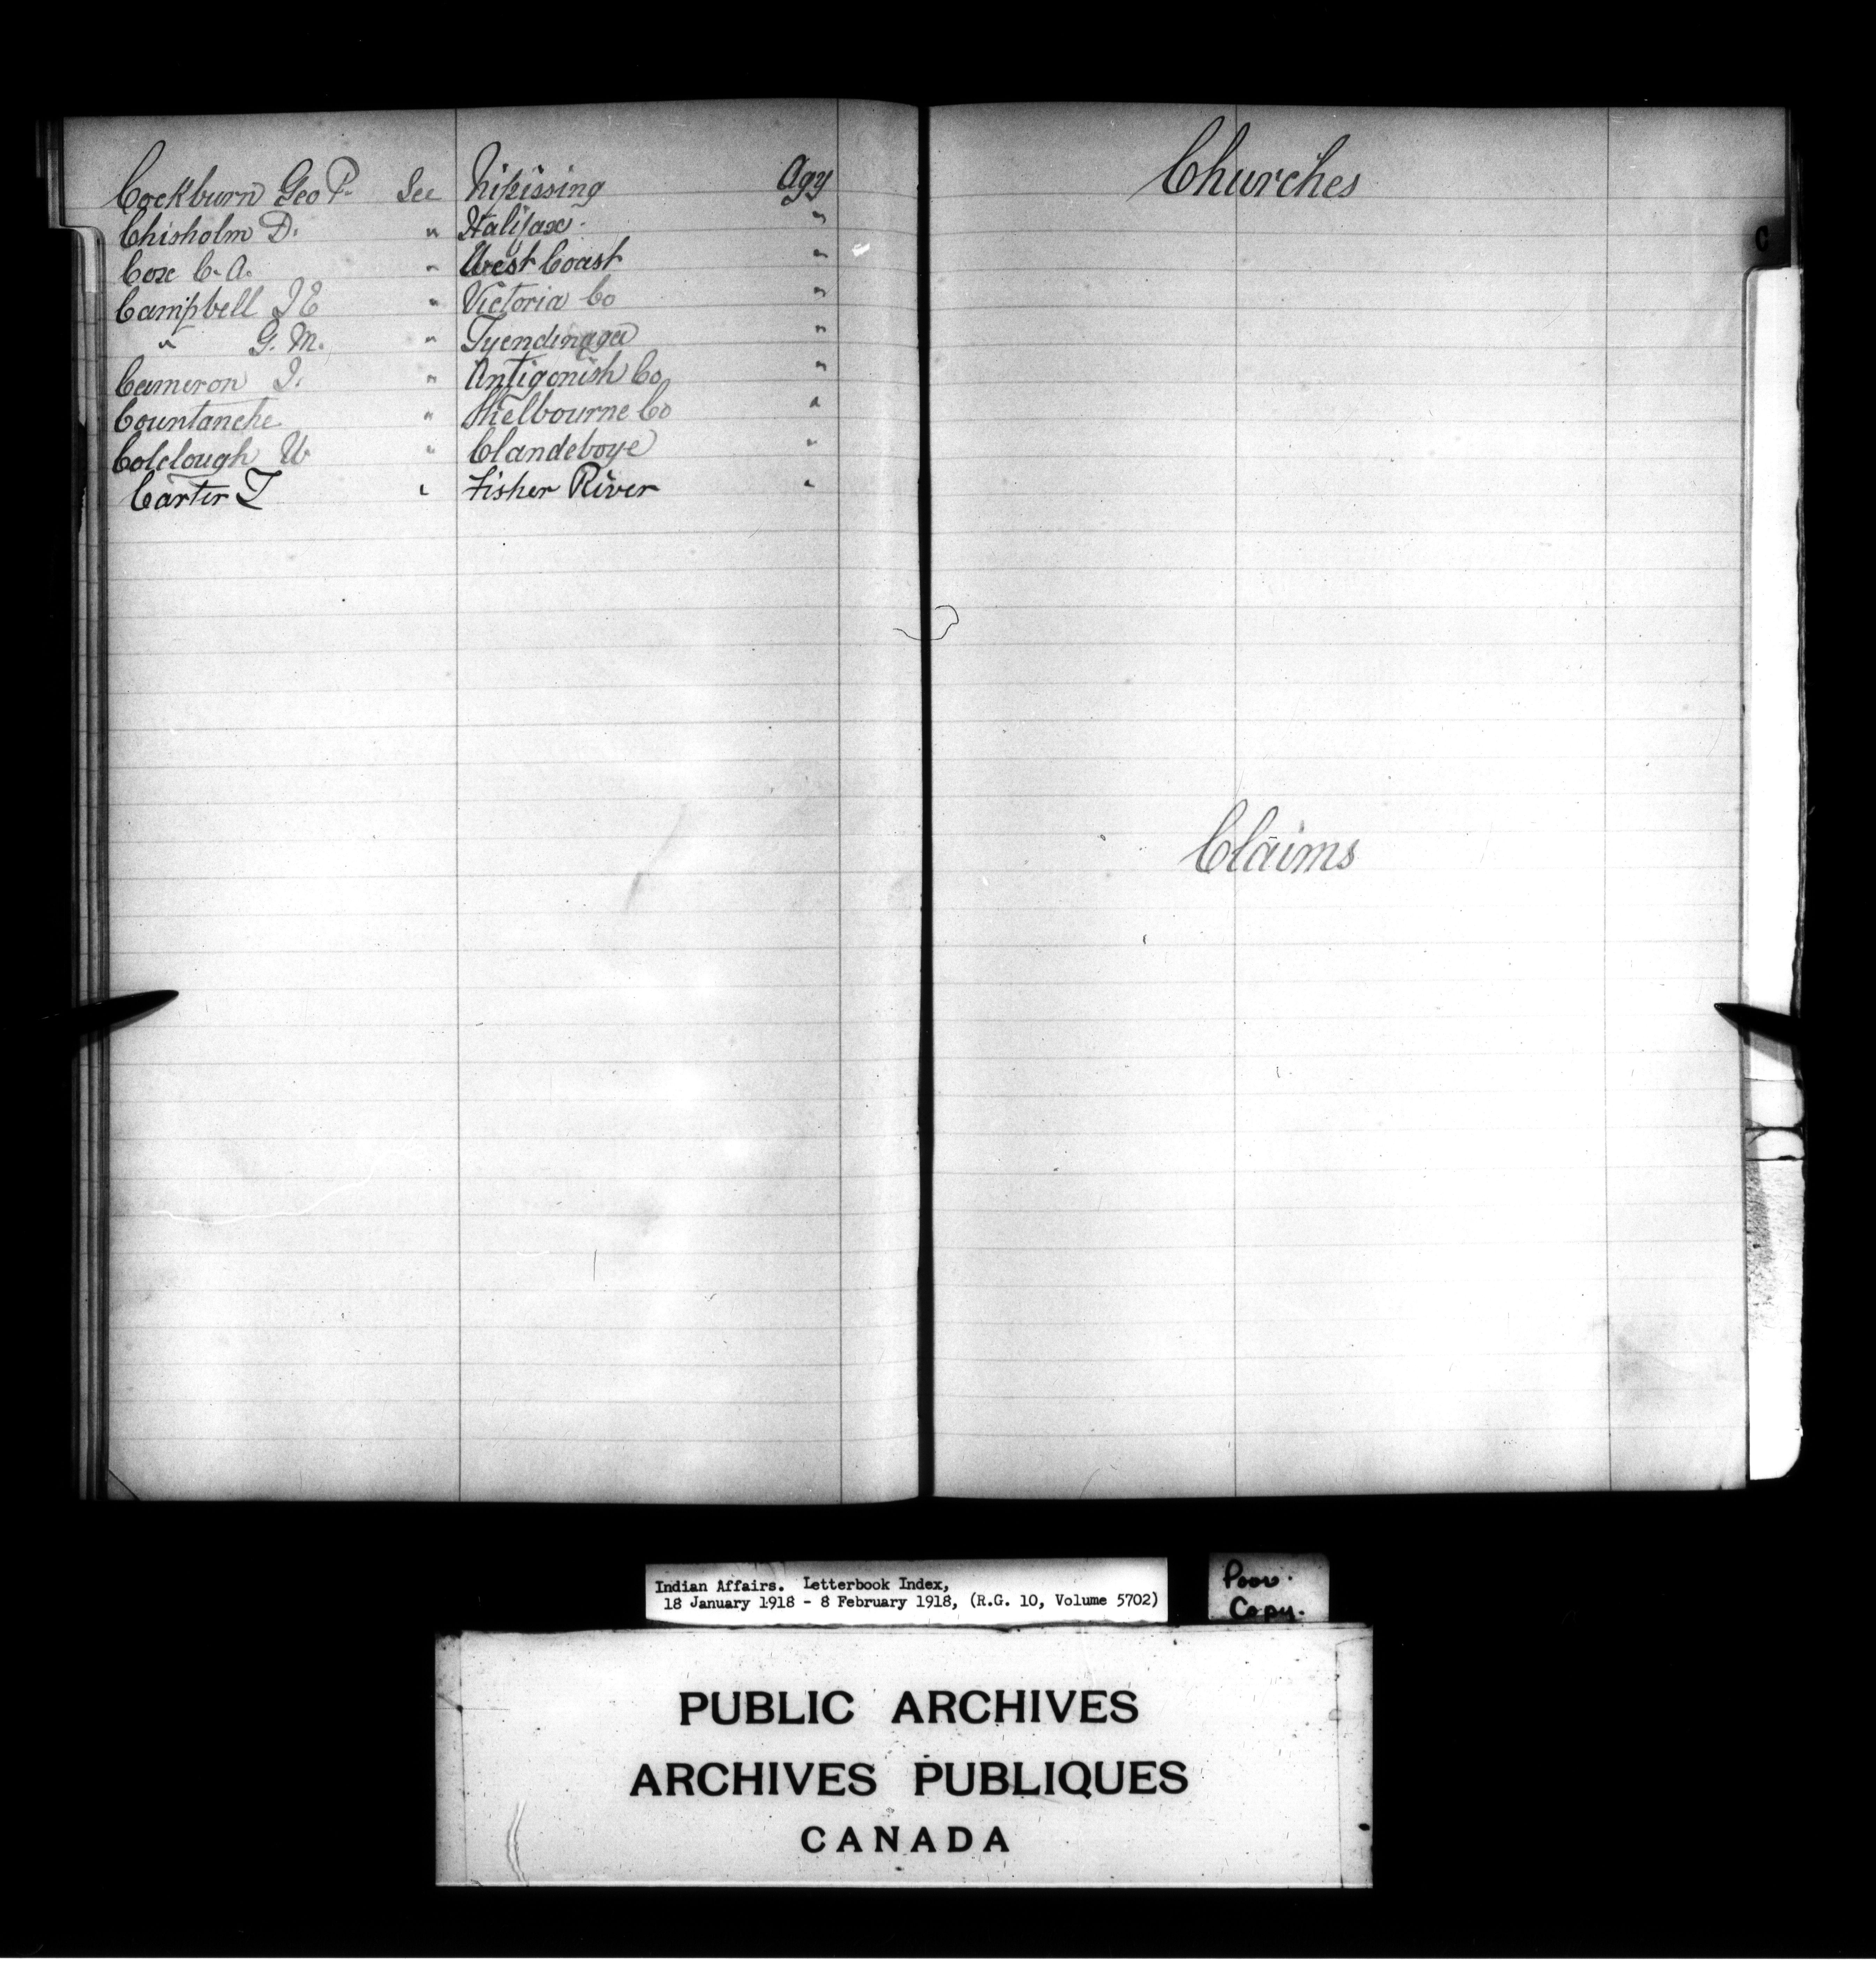 Cockburn Geo P. See Nipissing Agy
Chisholm D. " Halifax "
Cox C. A. " West Coast "
Campbell J E " Victoria Co "
" G. M. " Tyendinaga "
Cameron J. " Antigonish Co "
Countanche " Shelbourne Co "
Colclough W " Clandeboye "
Carter T " Fisher River "
Churches
C
Claims
Indian Affairs. Letterbook Index,
18 January 1918 - 8 February 1918, (R.G. 10, Volume 5702)
Poor.
Copy.
PUBLIC ARCHIVES
ARCHIVES PUBLIQUES
CANADA